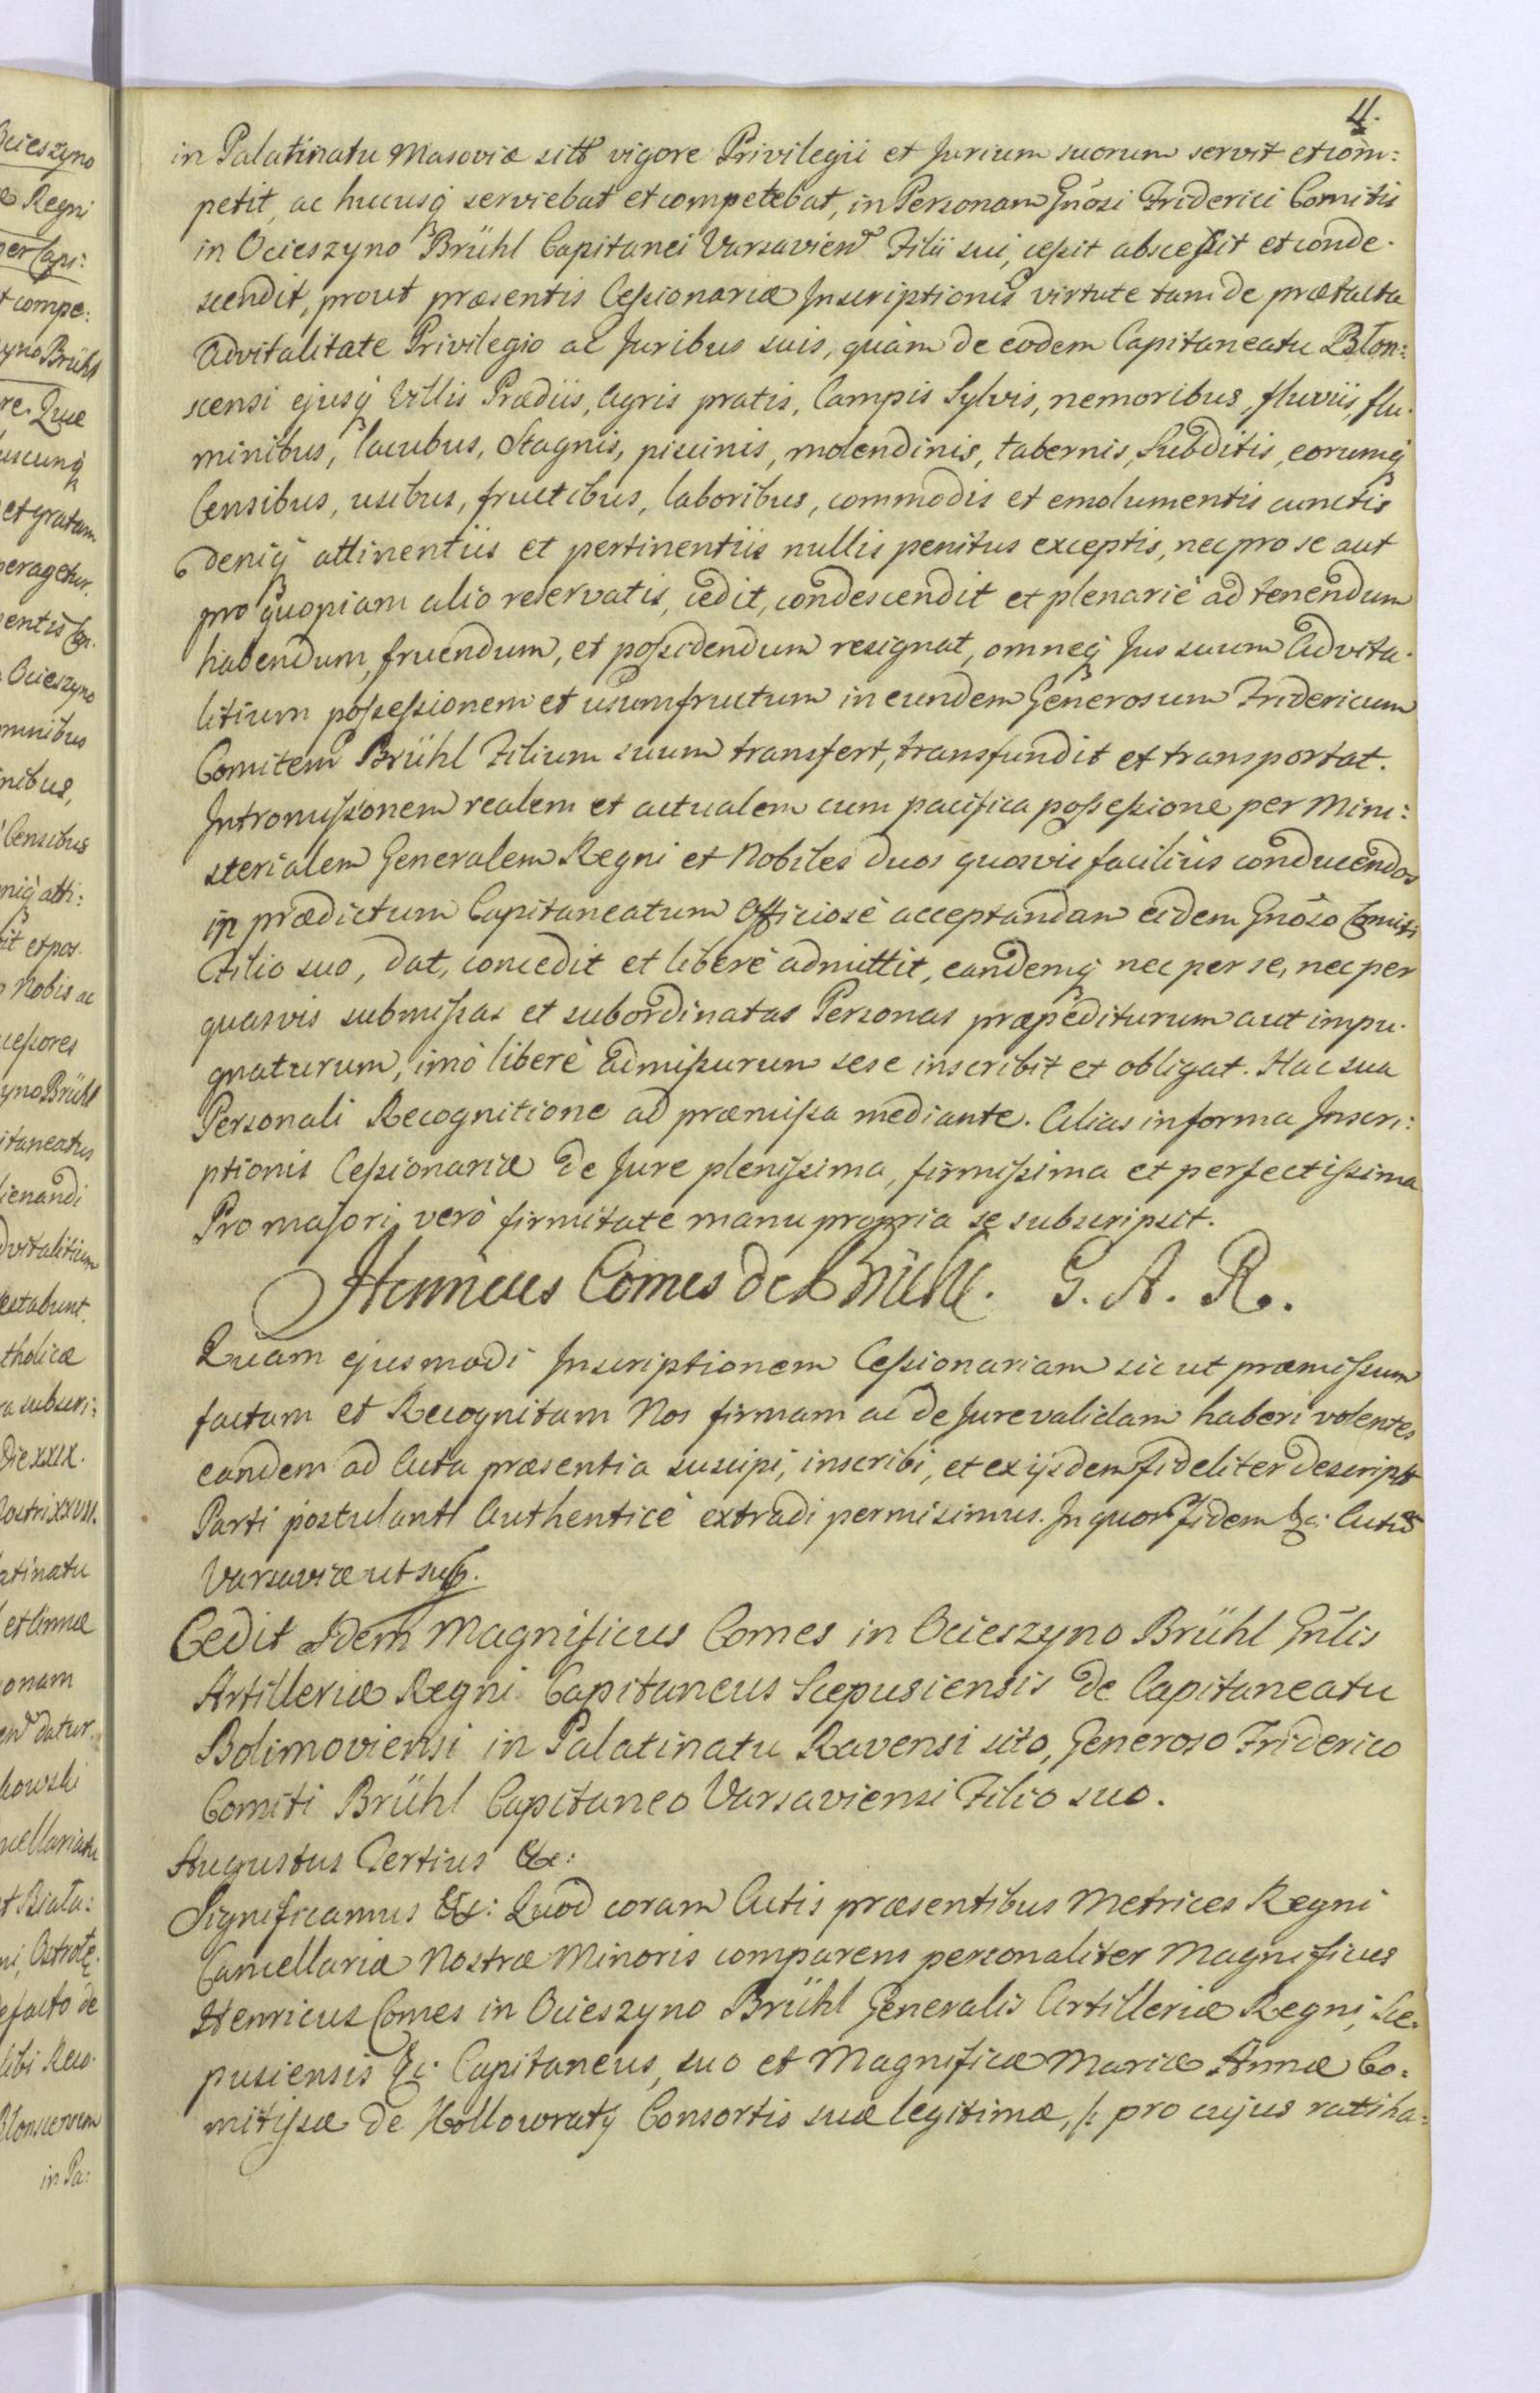 4.
in Palatinatu Masoviæ sitō vigore Privilegii et Jurium suorum servit et com:
petit, ac hucusq̃ serviebat et competebat, in Personam Gnōsi Friderici Comitis
in Ocieszyno Brühl Capitanei Varsavien̄ Filii sui, ceſsit absceſsit et conde-
scendit, prout præsentis Ceſsionariæ Inscriptionis virtute tam de prætacta
Advitalitate Privilegio ac Juribus suis, quàm de eodem Capitaneatu Błon:
scensi ejusq̃ Villis Prædiis, Agris pratis, Campis Sylvis, nemoribus, fluviis, flu-
minibus, lacubus, Stagnis, piscinis, molendinis, tabernis, Subditis, eorumq̃
Censibus, usibus, fructibus, laboribus, commodis et emolumentis cunctis
deniq̃ attinentiis et pertinentiis nullis penitus exceptis, nec pro se aut
pro quopiam alio reservatis, cedit, condescendit et plenariè ad tenendum
habendum, fruendum, et poſsidendum resignat, omneq̃ Jus suum Advita-
litium poſseſsionem et usumfructum in eundem Generosum Fridericum
Comitem Brühl Filium suum transfert, transfundit et transportat.
Intromiſsionem realem et actualem cum pacifica poſseſsione per Mini:
sterialem Generalem Regni et Nobiles duos quosvis faciliùs conducendos
in prædictum Capitaneatum Officiosè acceptandam eidem Gnōso Comiti
Filio suo, dat, concedit et liberè admittit, eandemq̃ nec per se, nec per
quasvis submiſsas et subordinatas Personas præpediturum aut impu-
gnaturum, imò liberè admiſsurum sese inscribit et obligat. Hac sua
Personali Recognitione ad præmiſsa mediante. Alias in forma Inscri:
ptionis Ceſsionariæ de Jure pleniſsima, firmiſsima et perfectiſsima
Pro majori verò firmitate manu propria se subscripsit.
Henricus Comes de Brühl. G. A. R.
Quam ejusmodi Inscriptionem Ceſsionariam sic ut præmiſsum
factam et Recognitam Nos firmam ac de Jure validam haberi volentes
eandem ad Acta præsentia suscipi, inscribi, et ex ijsdem fideliter descriptā
Parti postulanti Authenticè extradi permisimus. In quor̄ fidem &c: Actū
Varsaviæ ut sup.
Cedit Idem Magnificus Comes in Ocieszyno Brühl Gn̄lis
Artilleriæ Regni Capitaneus Scepusiensis de Capitaneatu
Bolimoviensi in Palatinatu Ravensi sito, Generoso Friderico
Comiti Brühl Capitaneo Varsaviensi Filio suo.
Augustus Tertius &c:
Significamus &c: Quod coram Actis præsentibus Metrices Regni
Cancellariæ Nostræ Minoris comparens personaliter Magnificus
Henricus Comes in Ocieszyno Brühl Generalis Artilleriæ Regni, Sce-
pusiensis &c: Capitaneus, suo et Magnificæ Mariæ Annæ Co-
mitiſsæ de Kollowraty Consortis suæ legitimæ, /: pro cujus ratiha-